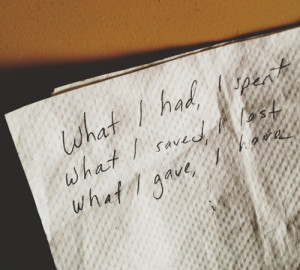 What I had, I spent
What I saved, I lost
What I gave, I have